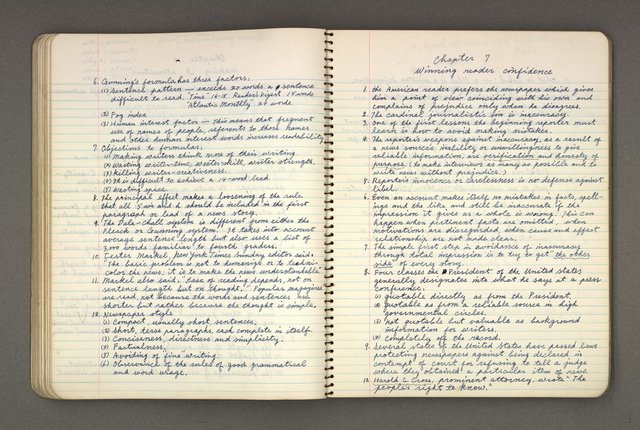 6. Gunning's formula has three factors:
(1) Sentence pattern — exceeds 20 words a sentence
difficult to read. "Time" 16-18 Reader's Digest 14 words
"Atlantic Monthly" 24 words.
(2) Fog index
(3) Human interest factor — This means that frequent
use of names of people, referents to those names
and other human interest words increases readability
7. Objections to formulas;
(1) Making writers think more of their writing.
(2) Wasting writer-time, writer-skill, writer strength.
(3) Killing writer-creativeness.
(4) It is difficult to achieve a 19-word lead
(5) Wasting space.
8. The principal effect makes a loosening of the rule
that all 5 w's and h should be included in the first
paragraph or lead of a news story.
9. The Dale-Chall system is different from either the
Flesch or Gunning system. It takes into account
average sentence length but also uses a list of
3,000 words familiar to fourth graders.
10. Lester Markel, New York Times Sunday editor said:
"The basic problem is not to Americanize or to techni-
color the news; it is to make the news understandable."
11. Markel also said: "Ease of reading depends, not on
sentence length but on thought." Popular magazines
are read, not because the words and sentences are
shorter but rather because the thought is simple.
12. Newspaper style
(1) Compact, usually short, sentences.
(2) Short, terse paragraphs, each complete in itself.
(3) Conciseness, directness and simplicity.
(4) Factualness.
(5) Avoiding of fine writing.
(6) Observance of the rules of good grammatical
and word usage.
Chapter 7
Winning reader confidence
1. the American reader prefers the newspaper which gives
him a point of view coinciding with his own and
complains of prejudice only when he disagrees.
2. The cardinal journalistic sin is inaccuracy.
3. One of the first lessons the beginning reporter must
learn is how to avoid making mistakes.
4. The reporter's weapons against inaccuracy, as a result of
a news source's inability or unwillingness to give
reliable information, are verification and honesty of
purpose (to make interviews as many as possible and to
write news without prejudice.)
5. Reporter's innocence or carelessness is no defense against
libel.
6. Even an account makes itself no mistakes in facts, spell-
ings and the like and still be inaccurate if the
impression it gives as a whole is wrong. This can
happen when pertinent facts are omitted, when
motivations are disregarded, when cause and effect
relationship are not made clear.
7. The simple first step in avoidance of inaccuracy
through total impression is to try to get the other
side of every story.
8. Four classes the President of the United States
generally designates into what he says at a press
Conference
(1) quotable directly as from the President,
(2) quotable as from a reliable source in high
governmental circles.
(3) not quotable but valuable as background
information for writers.
(4) completely off the record.
9. Several states in the United States have passed laws
protecting newspapers against being declared in
contempt of court for refusing to tell a judge
where they obtained a particular item of news.
10. Harold L. Cross, prominent attorney, wrote "The
people's right to know."